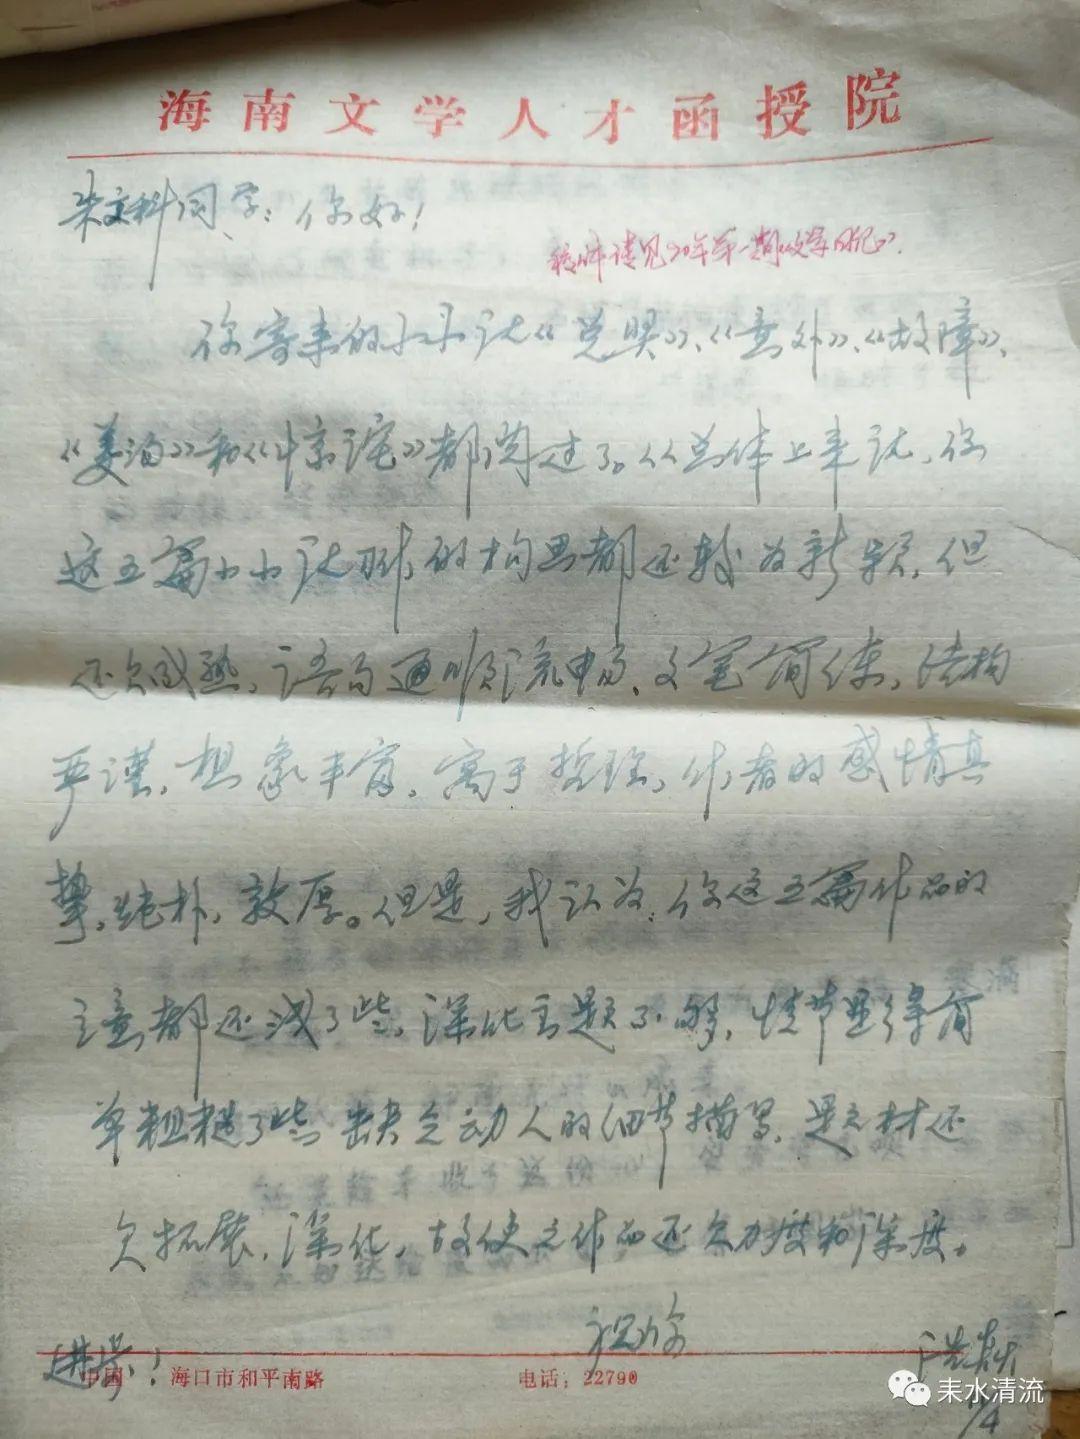 海南文学人才函授院
朱文科同学：你好！
请见90年第一期《文学日记》.
你寄来的小小说《兑奖》、《意外》、《故障》、
《姜汤》和《惊诧》都阅过了。从总体上来说，你
这五篇小小说习作的构思都还较为新颖，但
还欠成熟，语句通顺流畅、文笔简练，结构
严谨，想象丰富，寓于哲理，作者的感情真
挚，纯朴，敦厚。但是，我认为：你这五篇作品的
立意都还浅了些，深化主题不够，情节显得简
单粗糙了些，缺乏动人的细节描写，题材还
欠拓展，深化，故使之作品还欠力度和深度。
祝你
进步！
中国 海口市和平南路 电话：22790
耒水清流